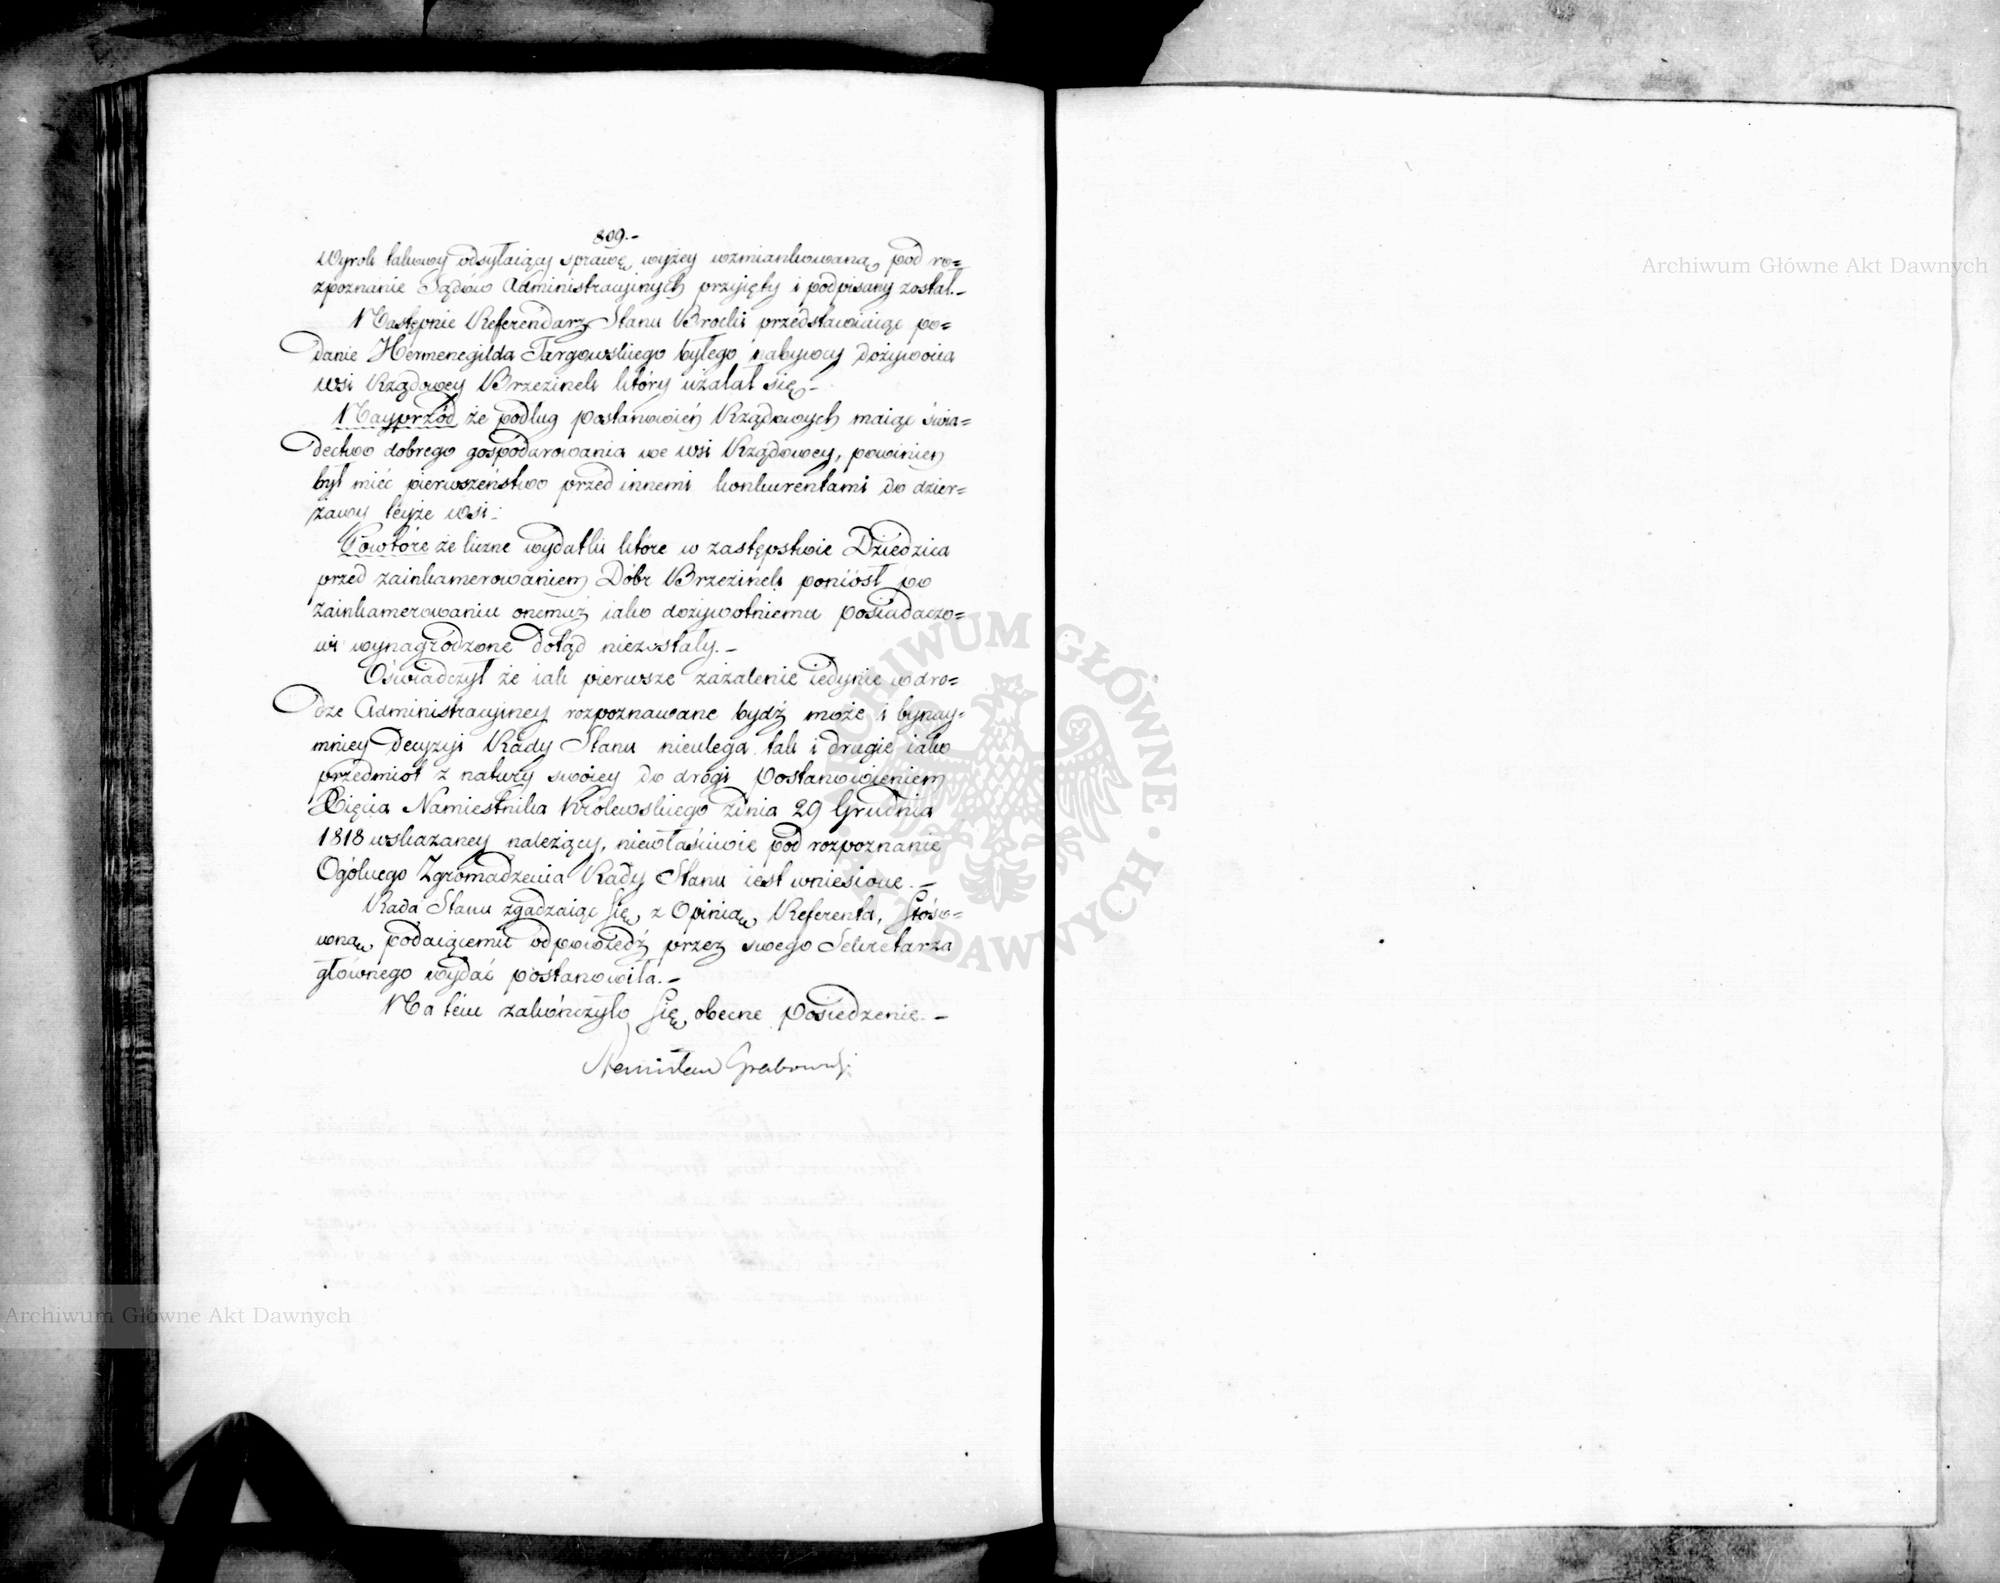 809.-
Wyrok takowy odsyłaiący sprawę wyżey wzmiankowaną pod ro=
zpoznanie Sądów Administracyinych przyięty i podpisany został.-
Następnie Referendarz Stanu Brocki przedstawiaiąc po=
danie Hermenegilda Targowskiego byłego nabywcy dożywocia
wsi Rządowey Brzezinek który użalał się.-
Nayprzód że podług postanowień Rządowych maiąc świa=
dectwo dobrego gospodarowania we wsi Rządowey, powinien
był mieć pierwszeństwo przed innemi konkurentami do dzier=
żawy teyże wsi.
Powtóre że liczne wydatki które w zastępstwie Dziedzica
przed zainkamerowaniem Dóbr Brzezinek poniósł po
zainkamerowaniu onemuż iako dożywotniemu posiadaczo=
wi wynagrodzone dotąd niezostały.-
Oświadczył że iak pierwsze zażalenie iedynie w dro=
dze Administracyiney rozpoznawane bydź może i bynay=
mniey Decyzyi Rady Stanu nieulega tak i drugie iako
przedmiot z natury swoiey do drogi Postanowieniem
Xięcia Namiestnika Królewskiego z dnia 29 Grudnia
1818 wskazaney należący, niewłaściwie pod rozpoznanie
Ogólnego Zgromadzenia Rady Stanu iest wniesione.-
Rada Stanu zgadzaiąc się z Opinią Referenta, stóso=
wną podaiącemu odpowiedź przez swego Sekretarza
głównego wydać postanowiła.-
Na tém zakończyło się obecne posiedzenie.-
Stanisław Grabowski
Archiwum Główne Akt Dawnych
ARCHIWUM GŁÓWNE AKT DAWNYCH
Archiwum Główne Akt Dawnych